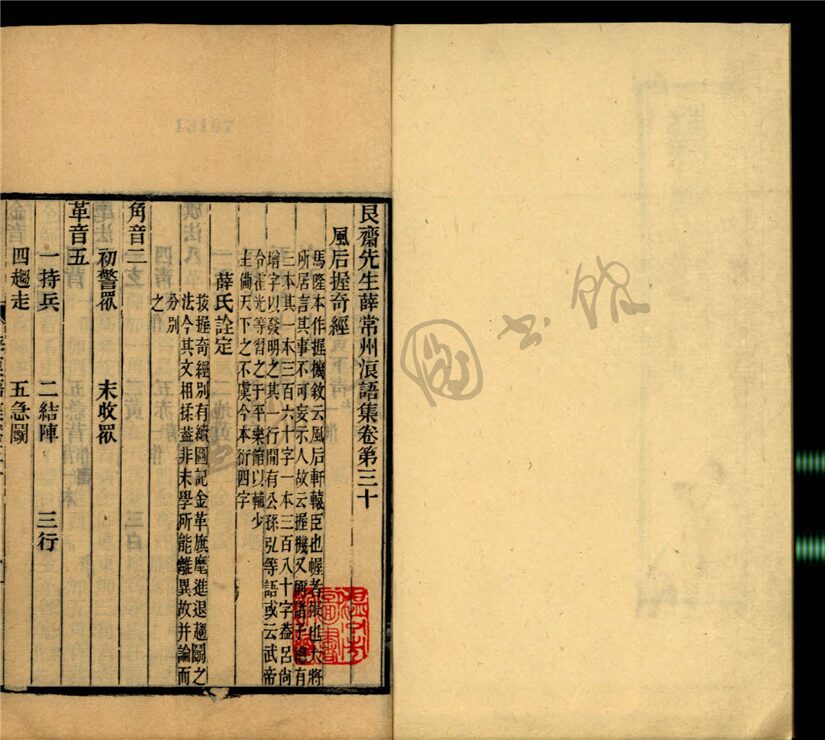 艮齋先生薛常州浪語集卷第三十
風后握奇經
馬隆本作握機敘云風后軒轅臣也幄者帳也大將
所居言其事不可妄示人故云握機又
三本其一本三百六十字一本三百八十字蓋呂尚
增字以發明之其一行閒有公孫弘等語或云武帝
令霍光等習之于平樂館以輔少
主備天下之不虞今本衍四字
薛氏詮定
按握奇經別有續圖記金革旗麾進退趨鬭之
法今其文相揉蓋非末學所能離異故并論而
分別
之
角音二
初警眾 末收眾
革音五
一持兵 二結陣 三行
四趨走 五急鬭